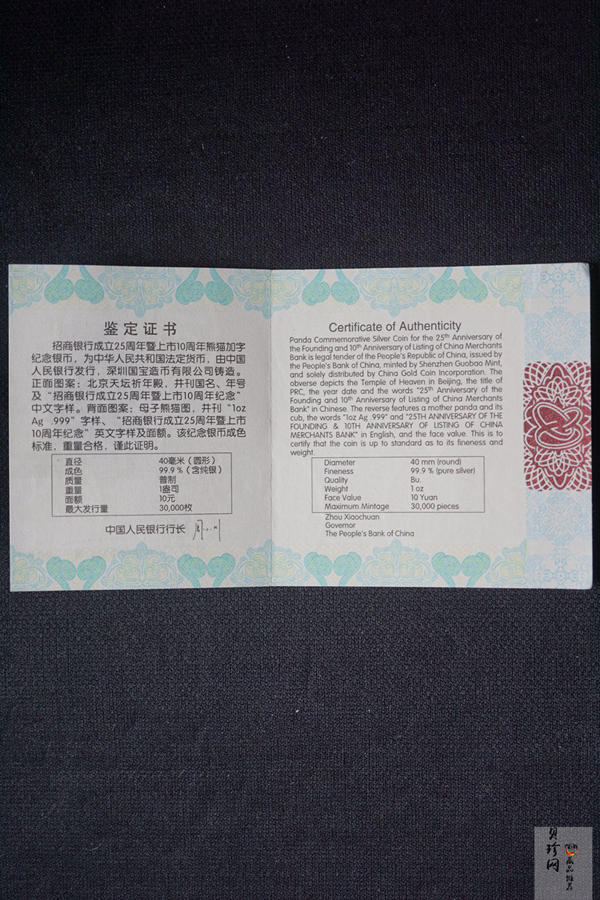 鉴定证书
招商银行成立25周年暨上市10周年熊猫加字
纪念银币，为中华人民共和国法定货币，由中国
人民银行发行，深圳国宝造币有限公司铸造。
正面图案：北京天坛祈年殿，并刊国名、年号
及“招商银行成立25周年暨上市10周年纪念”
中文字样。背面图案：母子熊猫图，并刊“1oz
Ag .999”字样、“招商银行成立25周年暨上市
10周年纪念”英文字样及面额。该纪念银币成色
标准，重量合格，谨此证明。
直径 40毫米（圆形）
成色 99.9％（含纯银）
质量 普制
重量 1盎司
面额 10元
最大发行量 30,000枚
中国人民银行行长
Certificate of Authenticity
Panda Commemorative Silver Coin for the 25th Anniversary of
the Founding and 10th Anniversary of Listing of China Merchants
Bank is legal tender of the People's Republic of China, issued by
the People's Bank of China, minted by Shenzhen Guobao Mint,
and solely distributed by China Gold Coin Incorporation. The
obverse depicts the Temple of Heaven in Beijing, the title of
PRC, the year date and the words "25th Anniversary of the
Founding and 10th Anniversary of Listing of China Merchants
Bank" in Chinese. The reverse features a mother panda and its
cub, the words "1oz Ag .999" and "25TH ANNIVERSARY OF THE
FOUNDING & 10TH ANNIVERSARY OF LISTING OF CHINA
MERCHANTS BANK" in English, and the face value. This is to
certify that the coin is up to standard as to its fineness and
weight.
Diameter 40 mm (round)
Fineness 99.9 % (pure silver)
Quality Bu.
Weight 1 oz
Face Value 10 Yuan
Maximum Mintage 30,000 pieces
Zhou Xiaochuan
Governor
The People's Bank of China
贝珍网
藏品推荐